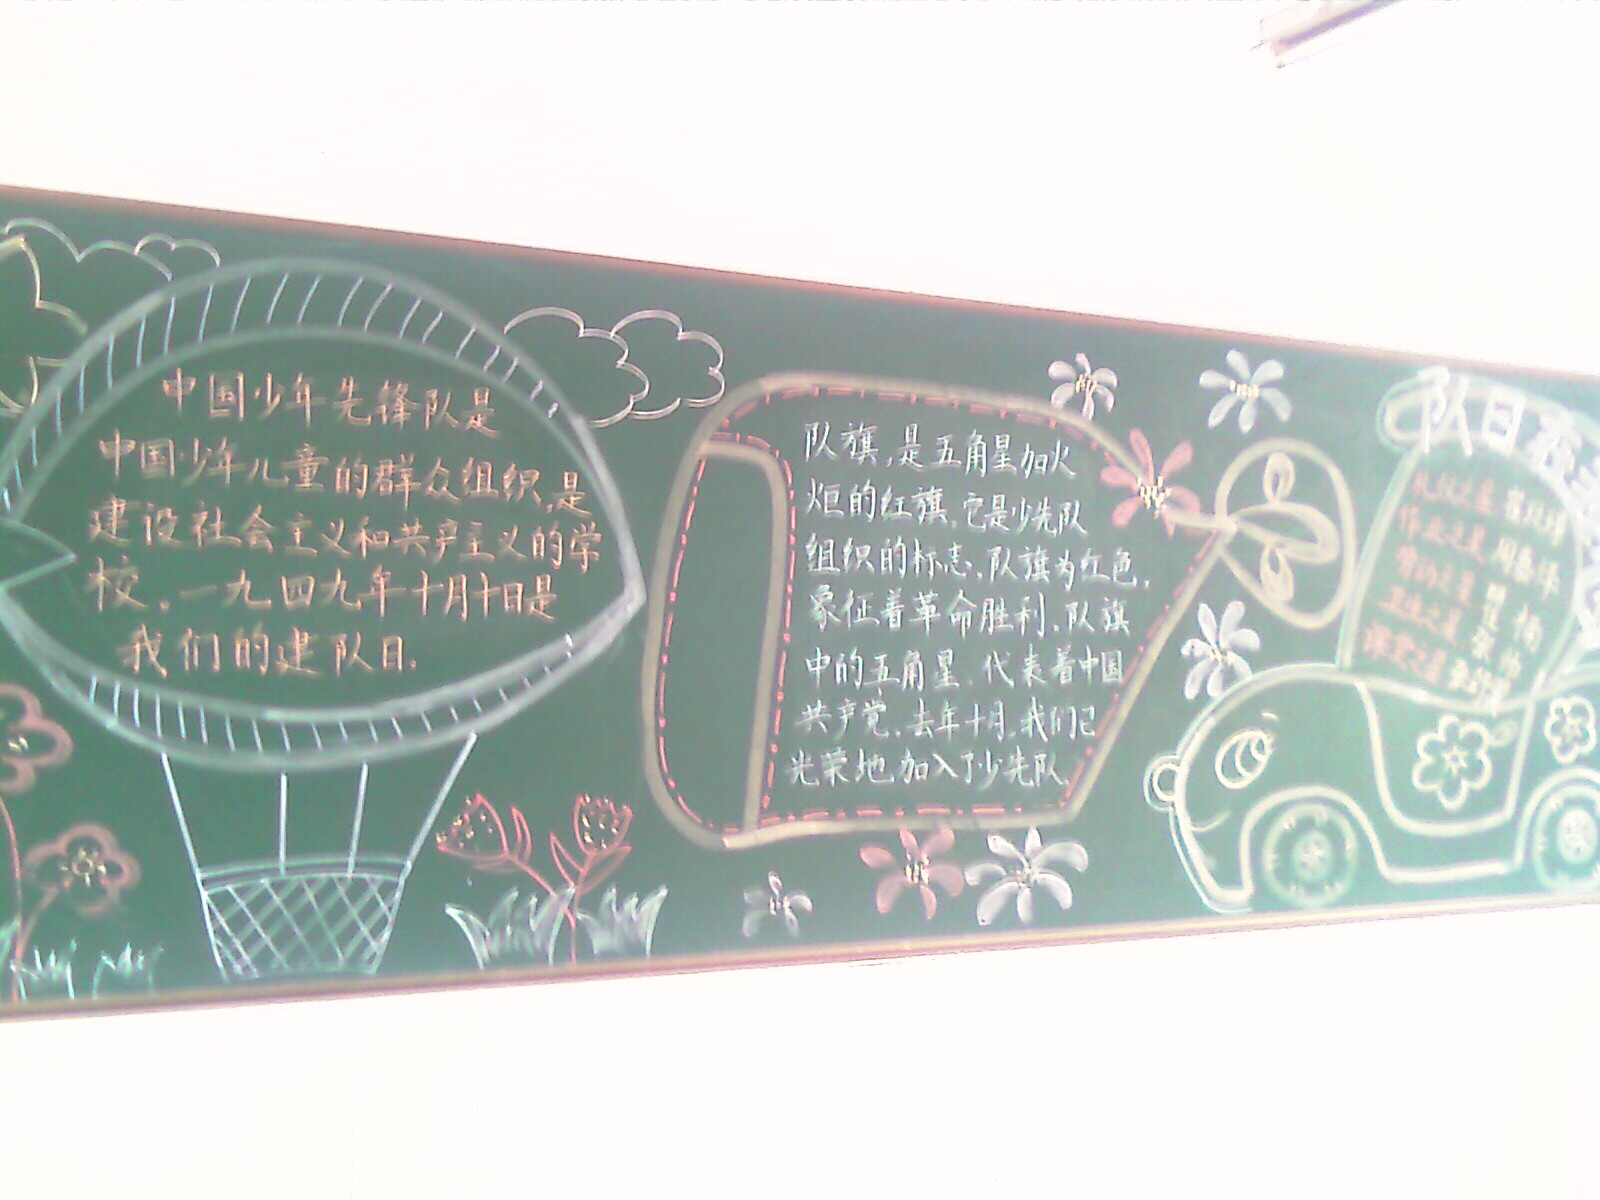 中国少年先锋队是
中国少年儿童的群众组织,是
建设社会主义和共产主义的学
校。一九四九年十月十日是
我们的建队日。
队旗,是五角星加火
炬的红旗。它是少先队
组织的标志。队旗为红色,
象征着革命胜利。队旗
中的五角星。代表着中国
共产党。去年十月,我们已
光荣地加入了少先队。
队日
礼仪之星
作业之星
劳动之星
之星
课堂之星